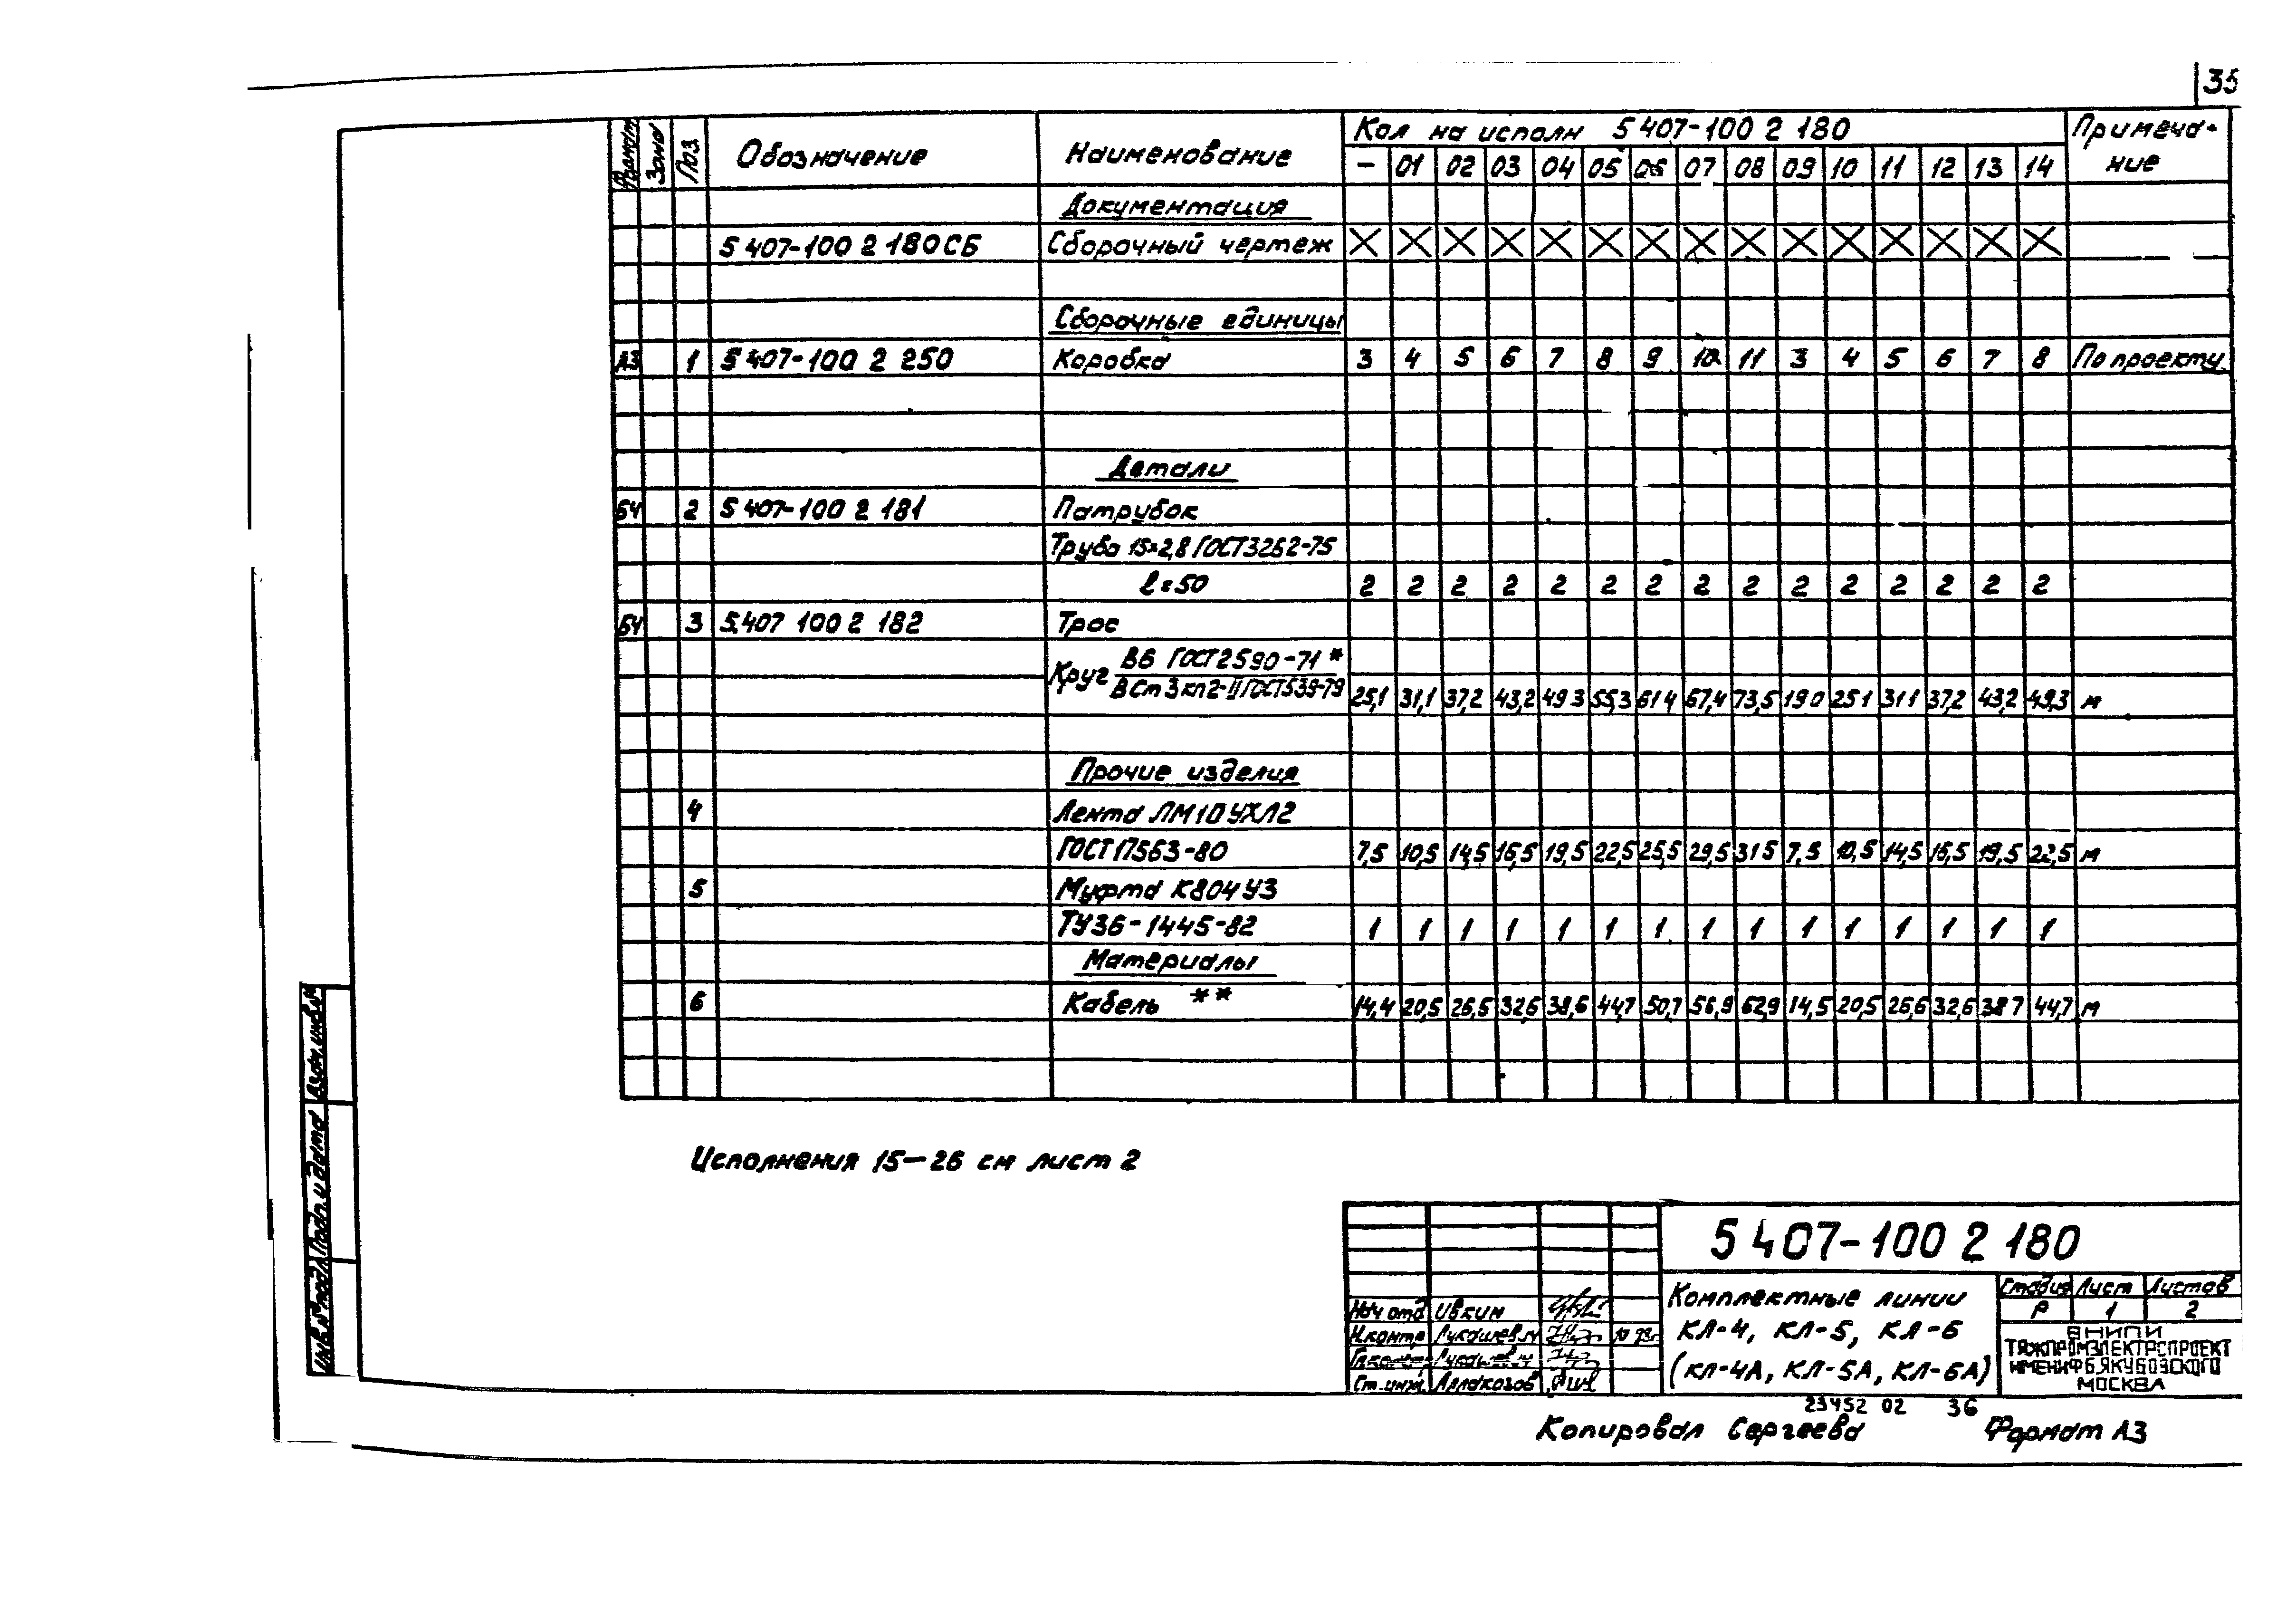 35
Формат Зона Поз. Обозначение Наименование Кол на исполн 5 407-100 2 180 Примеча-ние
– 01 02 03 04 05 06 07 08 09 10 11 12 13 14
Документация
5 407-100 2 180 СБ Сборочный чертеж X X X X X X X X X X X X X X X
Сборочные единицы
А3 1 5 407-100 2 250 Коробка 3 4 5 6 7 8 9 10 11 3 4 5 6 7 8 По проекту
Детали
БЧ 2 5 407-100 2 181 Патрубок
Труба 15×2,8 ГОСТ3262-75
l=50 2 2 2 2 2 2 2 2 2 2 2 2 2 2 2
БЧ 3 5.407 100 2 182 Трос
Круг В6 ГОСТ2590-71*
ВСт3кп2-II ГОСТ535-79 25,1 31,1 37,2 43,2 49 3 55,3 61 4 67,4 73,5 19 0 25 1 31 1 37,2 43,2 49,3 м
Прочие изделия
4 Лента ЛМ10УХЛ2
ГОСТ17563-80 7,5 10,5 14,5 16,5 19,5 22,5 25,5 29,5 31 5 7,5 10,5 14,5 16,5 19,5 22,5 м
5 Муфта К804У3
ТУ36-1445-82 1 1 1 1 1 1 1 1 1 1 1 1 1 1 1
Материалы
6 Кабель ** 14,4 20,5 26,5 32,6 38,6 44,7 50,7 56,9 62,9 14,5 20,5 26,6 32,6 38 7 44,7 м
Исполнения 15–26 см лист 2
Взам. инв.№
Подп. и дата
Инв.№ подл.
5 407-100 2 180
Комплектные линии
КЛ-4, КЛ-5, КЛ-6
(КЛ-4А, КЛ-5А, КЛ-6А)
Стадия Лист Листов
Р 1 2
ВНИПИ
ТЯЖПРОМЭЛЕКТРОПРОЕКТ
ИМЕНИ Ф Б ЯКУБОВСКОГО
МОСКВА
Нач отд Ивкин
Н.контр Лукашевич
Лукашевич
Ст.инж.
23452 02 36
Копировал Сергеева Формат А3